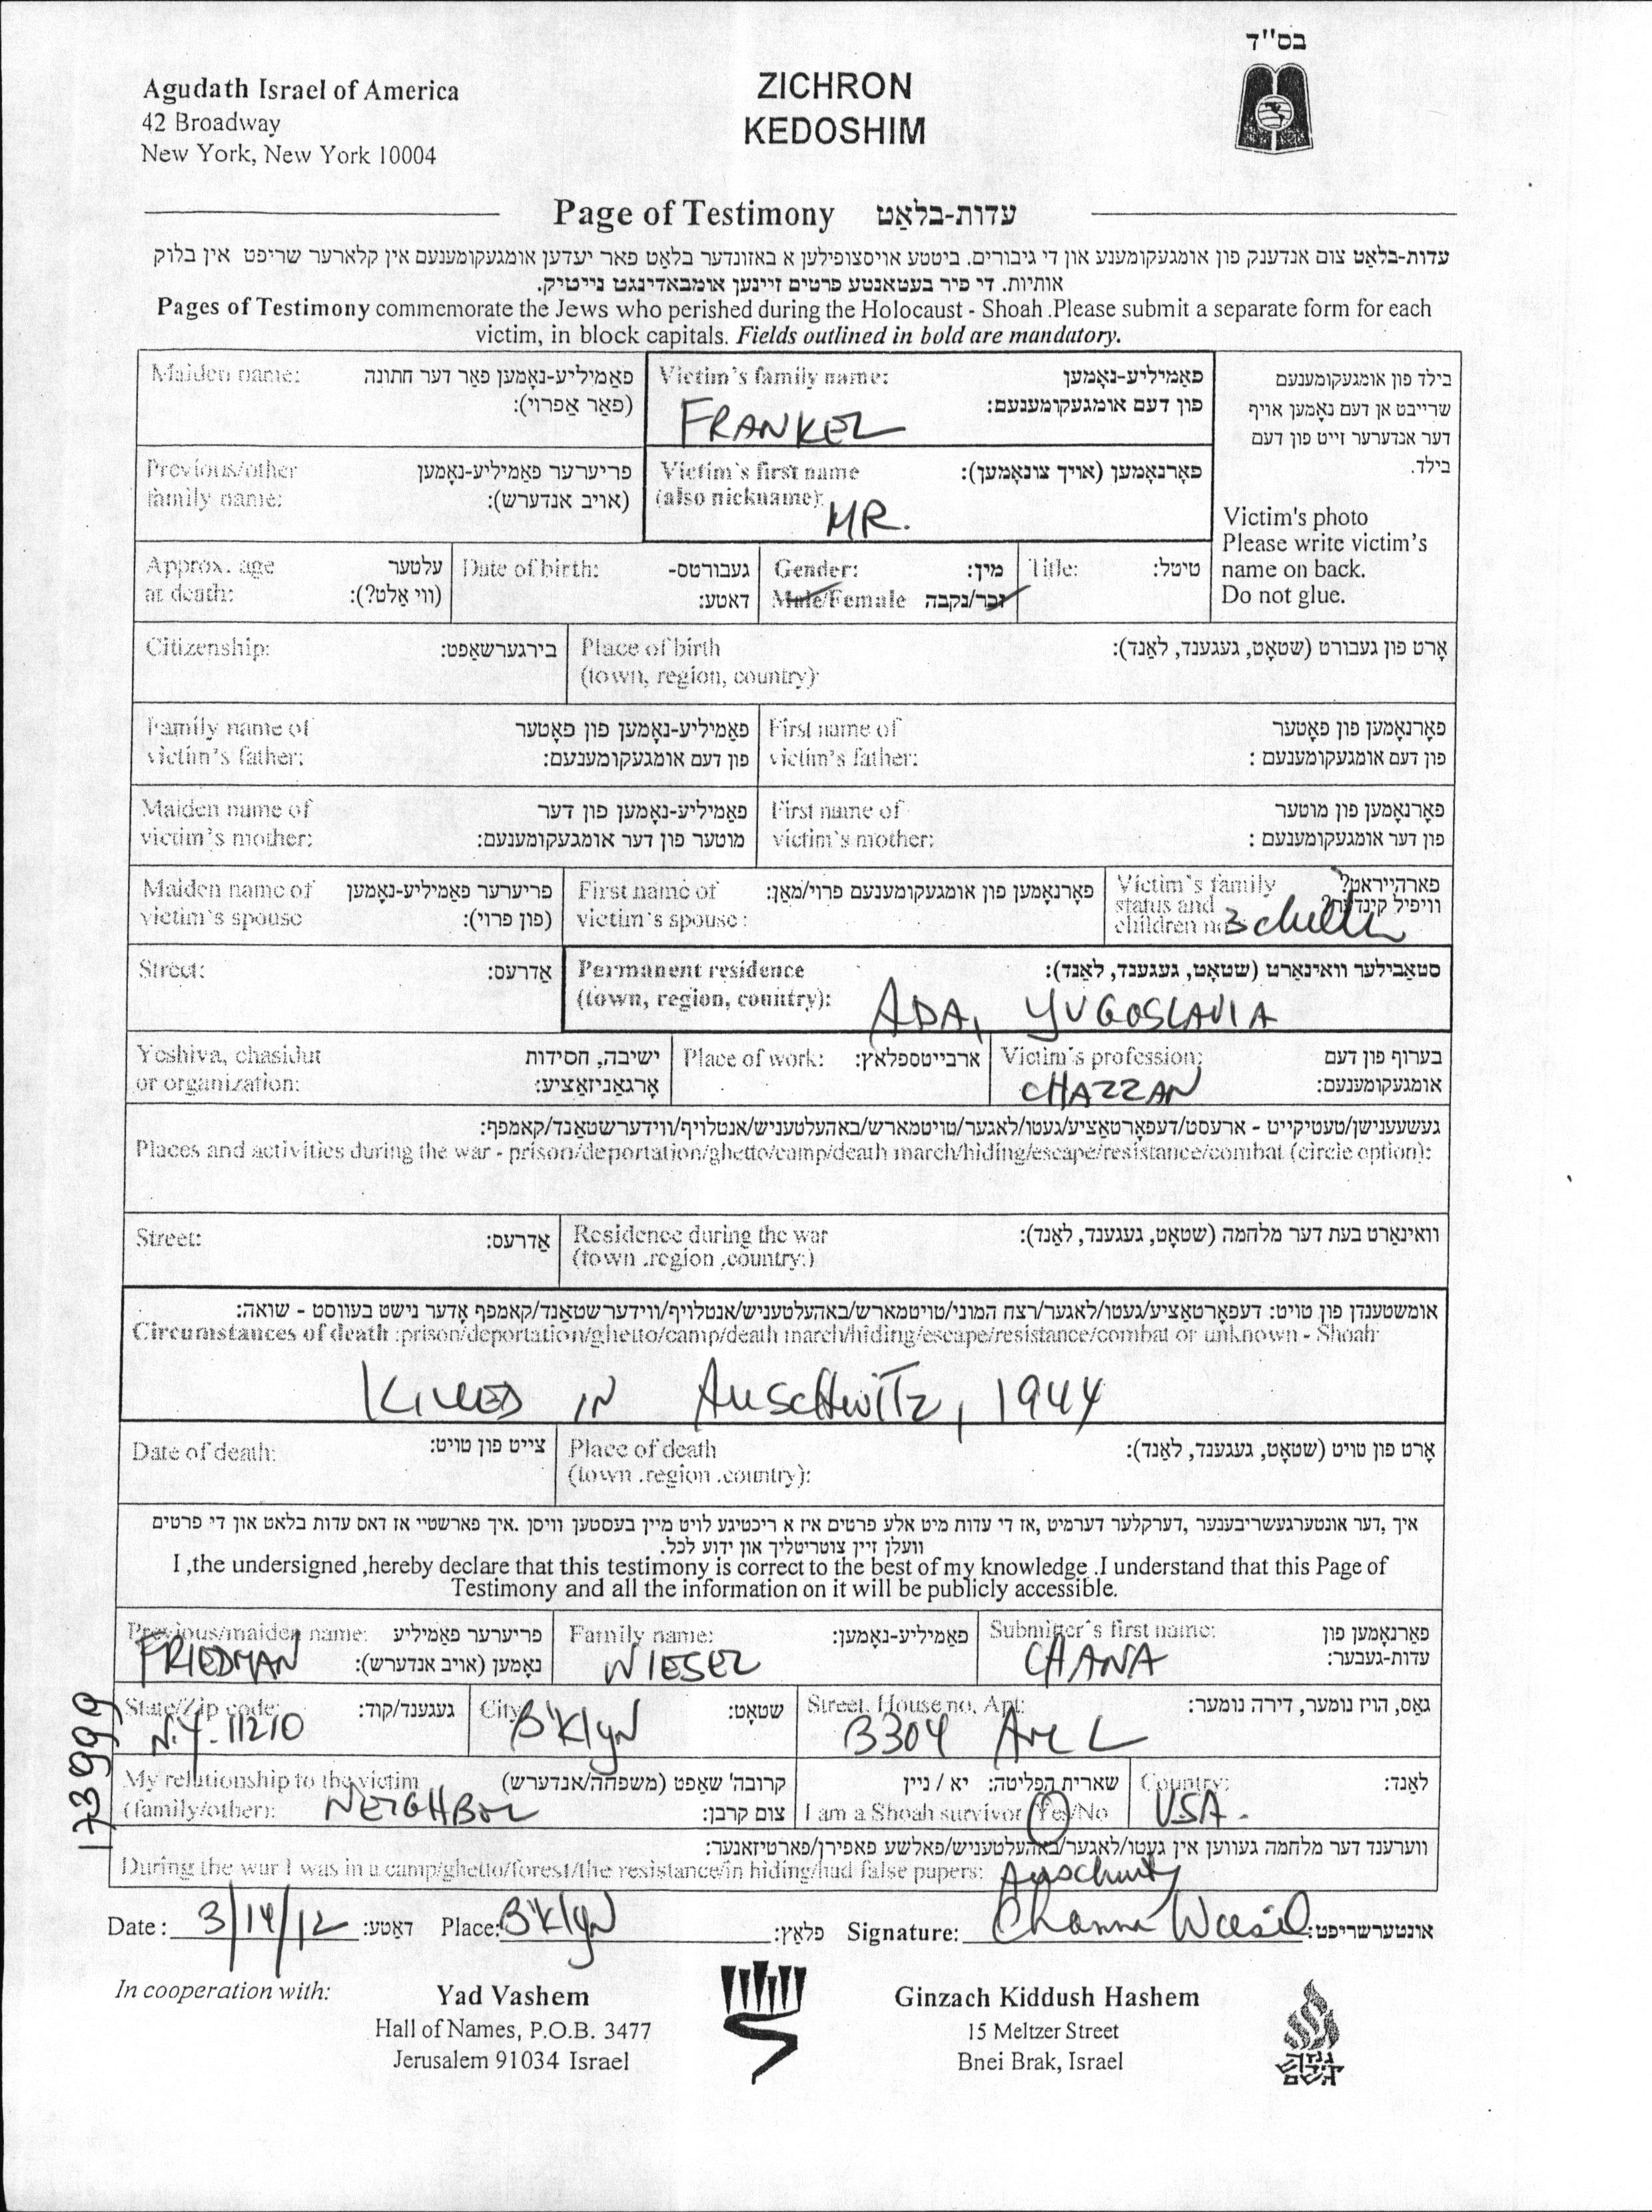 בס"ד
Agudath Israel of America
42 Broadway
New York, New York 10004
ZICHRON
KEDOSHIM
Page of Testimony עדות-בלאַט
עדות-בלאַט צום אנדענק פון אומגעקומענע און די גיבורים. ביטטע אויסצופילען א באזונדער בלאַט פאר יעדען אומגעקומענעם אין קלארער שריפט אין בלוק
אותיות. די פיר בעטאנטע פרטים זיינען אומבאדינגט נייטיק.
Pages of Testimony commemorate the Jews who perished during the Holocaust - Shoah .Please submit a separate form for each
victim, in block capitals. Fields outlined in bold are mandatory.
Maiden name: פאַמיליע-נאָמען פאַר דער חתונה
(פאַר אַפרוי):
Victim's family name: פאַמיליע-נאָמען
פון דעם אומגעקומענעם:
FRANKEL
בילד פון אומגעקומענעם
שרייבט אן דעם נאָמען אויף
דער אנדערער זייט פון דעם
בילד.
Victim's photo
Please write victim's
name on back.
Do not glue.
Previous/other פריערער פאַמיליע-נאָמען
family name: (אויב אנדערש):
Victim's first name פאָרנאָמען (אויך צונאָמען):
(also nickname):
MR.
Approx. age עלטער
at death: (ווי אַלט?):
Date of birth: געבורטס-
דאטע:
Gender: מין:
Male/Female זכר/נקבה
Title: טיטל:
Citizenship: בירגערשאַפט:
Place of birth אָרט פון געבורט (שטאָט, געגענד, לאַנד):
(town, region, country):
Family name of פאַמיליע-נאָמען פון פאָטער
victim's father: פון דעם אומגעקומענעם:
First name of פאָרנאָמען פון פאָטער
victim's father: פון דעם אומגעקומענעם :
Maiden name of פאַמיליע-נאָמען פון דער
victim's mother: מוטער פון דער אומגעקומענעם:
First name of פאָרנאָמען פון מוטער
victim's mother: פון דער אומגעקומענעם :
Maiden name of פריערער פאַמיליע-נאָמען
victim's spouse (פון פרוי):
First name of פאָרנאָמען פון אומגעקומענעם פרוי/מאַן:
victim's spouse :
Victim's family פארהייראט?
status and וויפיל קינדער?
children no 3
Street: אַדרעס:
Permanent residence סטאַבילער וואינאָרט (שטאָט, געגענד, לאַנד):
(town, region, country):
ADA, YUGOSLAVIA
Yeshiva, chasidut ישיבה, חסידות
or organization: אָרגאַניזאַציע:
Place of work: ארבייטספלאַץ:
Victim's profession: בערוף פון דעם
אומגעקומענעם:
CHAZZAN
געשעענישן/טעטיקייט - ארעסט/דעפאָרטאַציע/געטו/לאגער/טויטמארש/באהעלטעניש/אנטלויף/ווידערשטאַנד/קאמפף:
Places and activities during the war - prison/deportation/ghetto/camp/death march/hiding/escape/resistance/combat (circle option):
Street: אַדרעס:
Residence during the war וואינאָרט בעת דער מלחמה (שטאָט, געגענד, לאַנד):
(town .region ,country:)
אומשטענדן פון טויט: דעפאָרטאַציע/געטו/לאגער/רצח המוני/טויטמארש/באהעלטעניש/אנטלויף/ווידערשטאַנד/קאמפף אָדער נישט בעוואוסט - שואה:
Circumstances of death :prison/deportation/ghetto/camp/death march/hiding/escape/resistance/combat or unknown - Shoah:
KILLED IN AUSCHWITZ, 1944
Date of death: צייט פון טויט:
Place of death אָרט פון טויט (שטאָט, געגענד, לאַנד):
(town .region .country):
איך ,דער אונטערגעשריבענער ,דערקלער דערמיט ,אז די עדות מיט אלע פרטים איז א ריכטיגע לויט מיין בעסטען וויסן .איך פארשטיי אז דאס עדות בלאט און די פרטים
וועלן זיין צוטריטליך און ידוע לכל.
I ,the undersigned ,hereby declare that this testimony is correct to the best of my knowledge .I understand that this Page of
Testimony and all the information on it will be publicly accessible.
Previous/maiden name: פריערער פאמיליע
נאָמען (אויב אנדערש):
FRIEDMAN
Family name: פאַמיליע-נאָמען:
WIESEL
Submitter's first name: פאָרנאָמען פון
עדות-געבער:
CHANA
State/Zip code: געגענד/קוד:
N.Y. 11210
City שטאָט:
B'klyn
Street, House no, Apt: גאַס, הויז נומער, דירה נומער:
3304 Ave L
My relationship to the victim קרובה' שאַפט (משפחה/אנדערש)
(family/other): צום קרבן:
NEIGHBOR
שארית הפליטה: יא / ניין
I am a Shoah survivor Yes/No
Country: לאַנד:
USA.
ווערענד דער מלחמה געווען אין געטו/לאגער/באהעלטעניש/פאלשע פאפירן/פארטיזאנער:
During the war I was in a camp/ghetto/forest/the resistance/in hiding/had false papers:
Auschwitz
Date : 3/14/12 דאַטע: Place: B'klyn פלאַץ: Signature: Channa Wiesel אונטערשריפט:
173999
In cooperation with:
Yad Vashem
Hall of Names, P.O.B. 3477
Jerusalem 91034 Israel
Ginzach Kiddush Hashem
15 Meltzer Street
Bnei Brak, Israel
גנזך
קידוש
השם